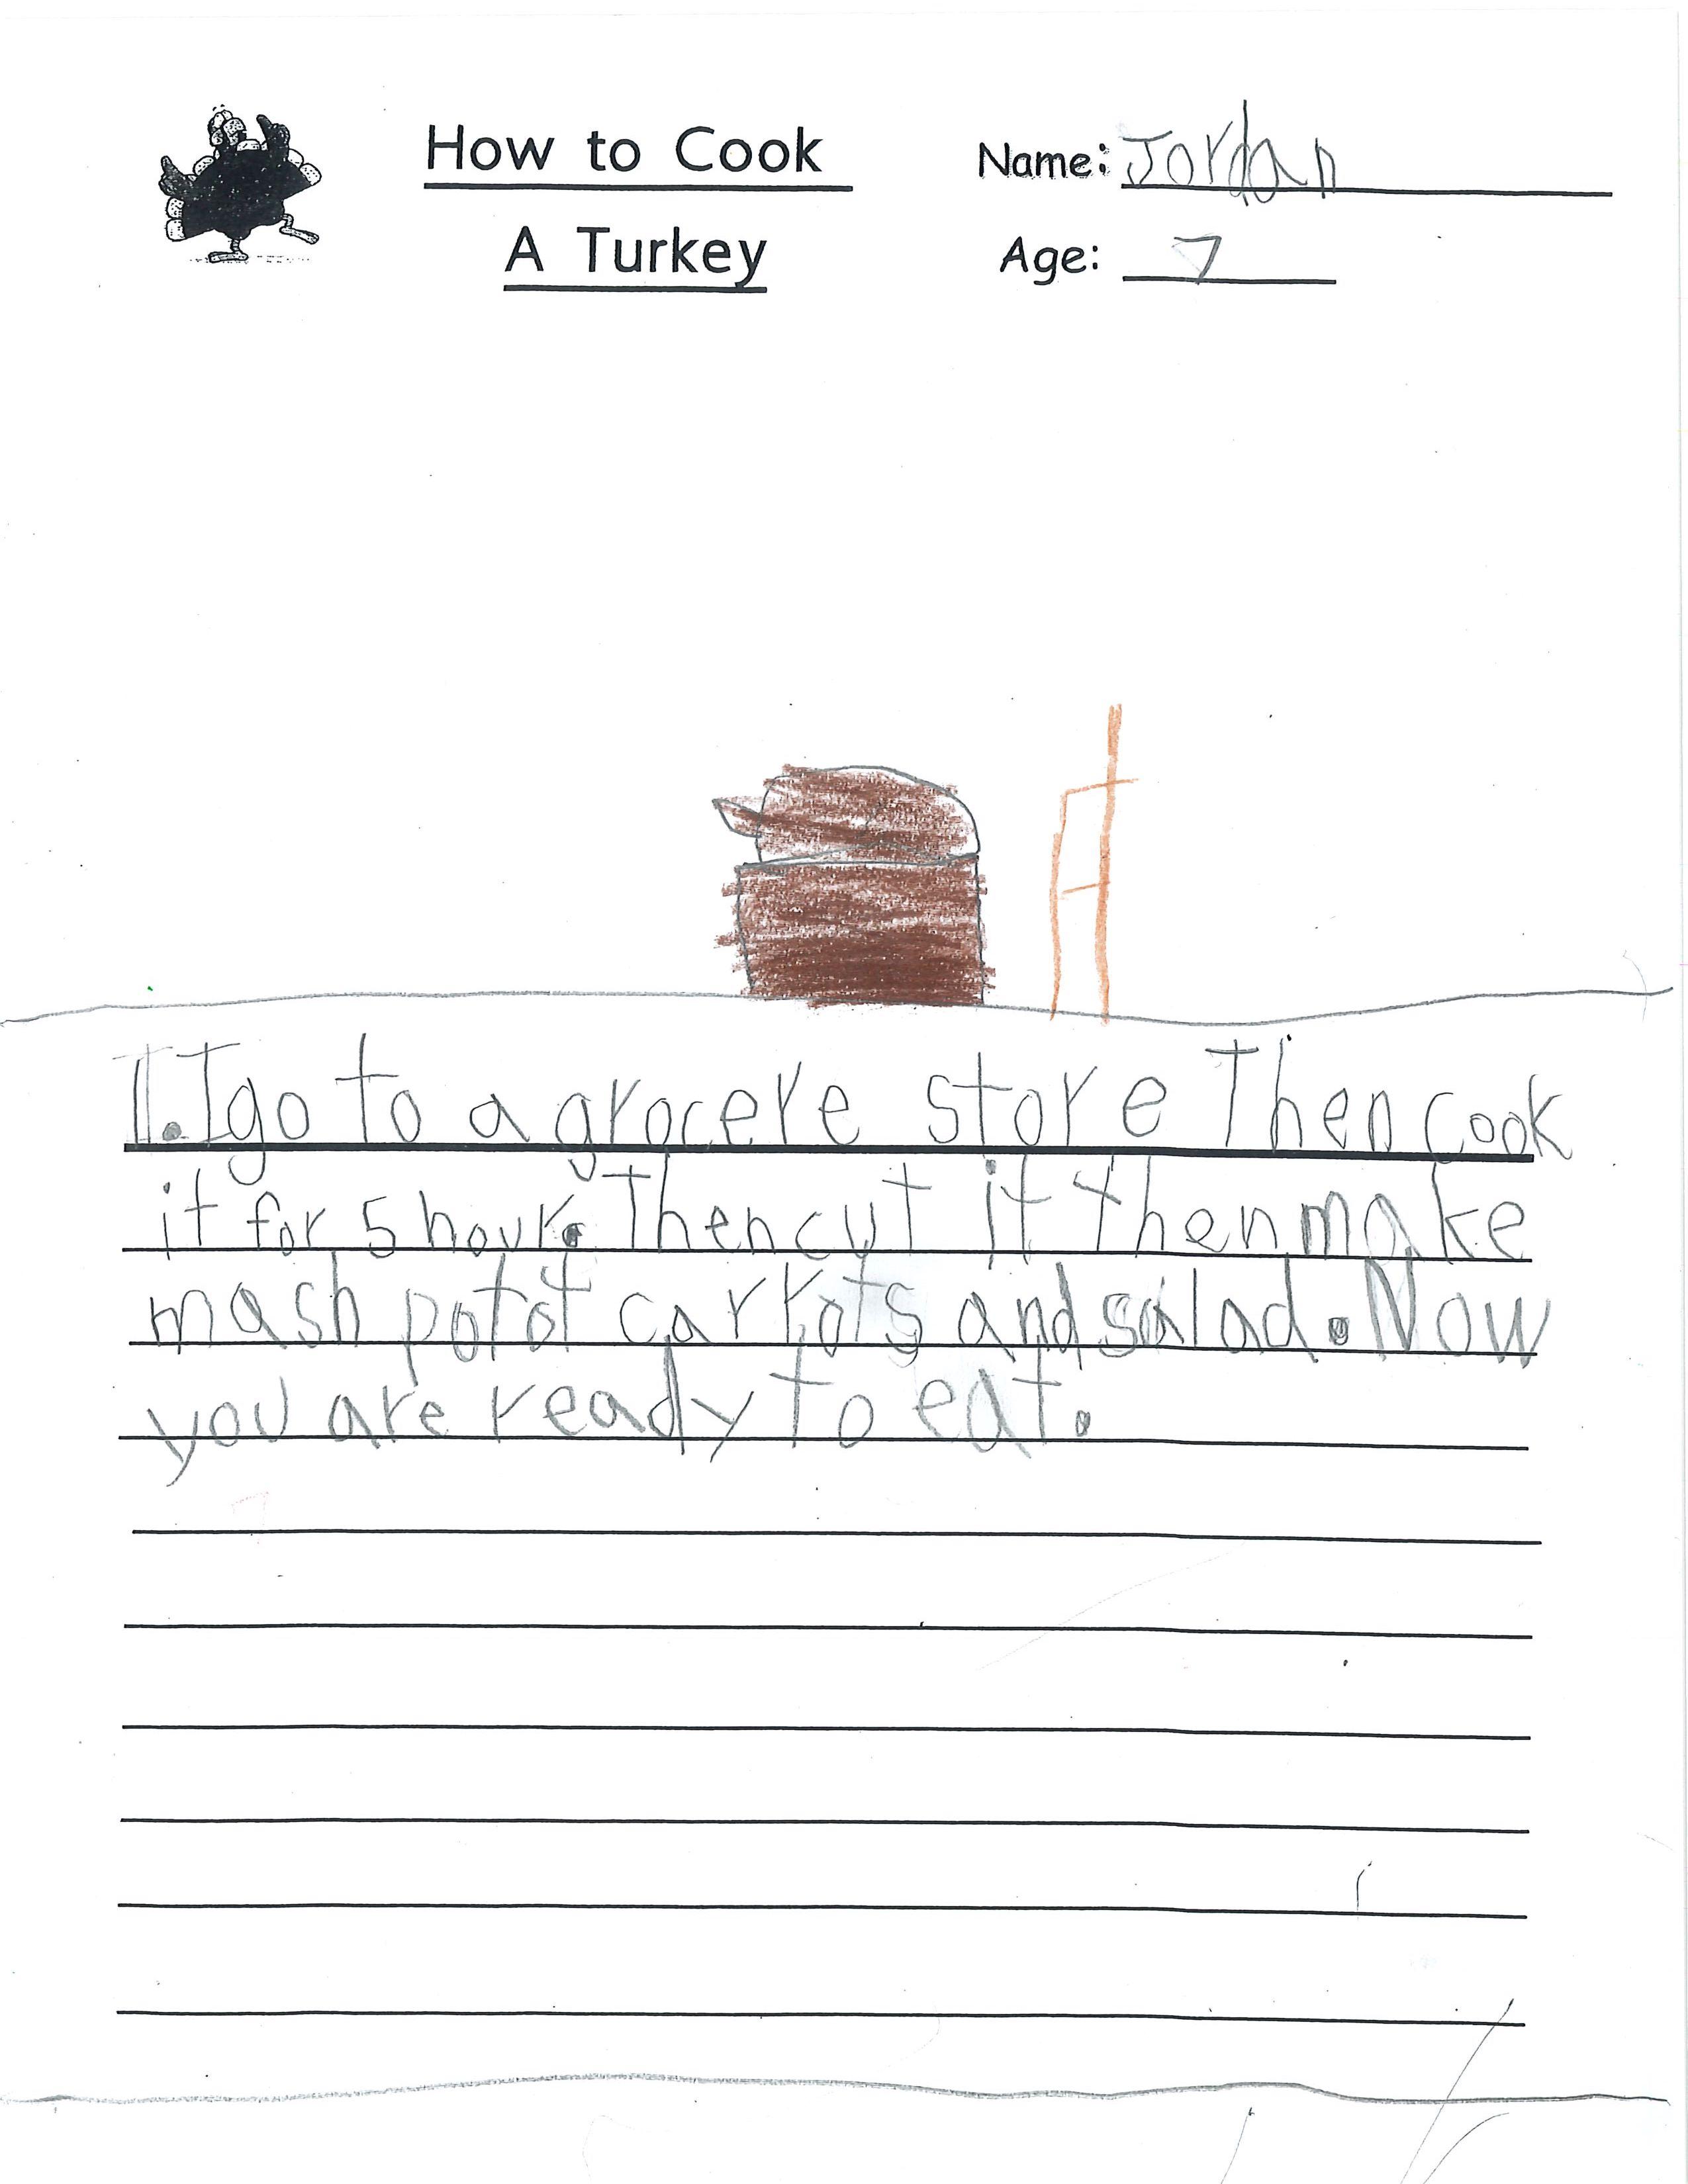 How to Cook
A Turkey
Name: Jordan
Age: 7
1. I go to a grocere store Then cook
it for 5 hour. Then cut it then make
mash potot carrots and salad. Now
you are ready to eat.